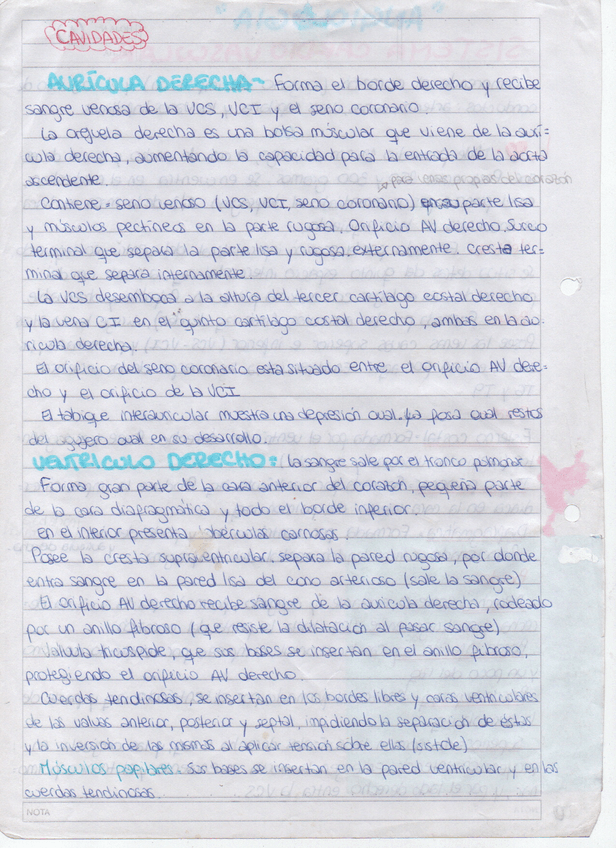 CAVIDADES
AURÍCULA DERECHA- Forma el borde derecho y recibe
sangre venosa de la VCS, VCI y el seno coronario.
La orejuela derecha es una bolsa múscular que viene de la aurí-
cula derecha, aumentándo la capacidad para la entrada de la aorta
ascendente.
para venas propias del corazón
Contiene= seno venoso (VCS, VCI, seno coronario) en su parte lisa
y músculos pectíneos en la parte rugosa. Orificio AV derecho. Surco
terminal que separa la parte lisa y rugosa externamente. Cresta ter-
minal que separa internamente.
La VCS desemboca a la altura del tercer cartílago costal derecho
y la vena CI en el quinto cartílago costal derecho, ambas en la au-
rícula derecha.
El orificio del seno coronario esta situado entre el orificio AV dere-
cho y el orificio de la VCI
El tabique interauricular muestra una depresión oval. La fosa oval restos
del agujero oval en su desarrollo.
VENTRÍCULO DERECHO= la sangre sale por el tronco pulmonar
Forma gran parte de la cara anterior del corazón, pequeña parte
de la cara diafragmática y todo el borde inferior.
en el interior presenta trabérculas carnosas.
Posee la cresta supraventricular. separa la pared rugosa, por donde
entra sangre en la pared lisa del cono arterioso (sale la sangre)
El orificio AV derecho recibe sangre de la aurícula derecha, rodeado
por un anillo fibroso (que resiste la dilatación al pasar sangre)
Valvula tricúspide, que sus bases se insertan en el anillo fibroso,
protegiendo el orificio AV derecho.
Cuerdas tendinosas, se insertan en los bordes libres y caras ventriculares
de las valvas anterior, posterior y septal, impidiendo la separación de éstas
y la inversión de las mismas al aplicar tensión sobre ellas (sistole)
Músculos papilares. Sus bases se insertan en la pared ventricular y en las
cuerdas tendinosas.
NOTA